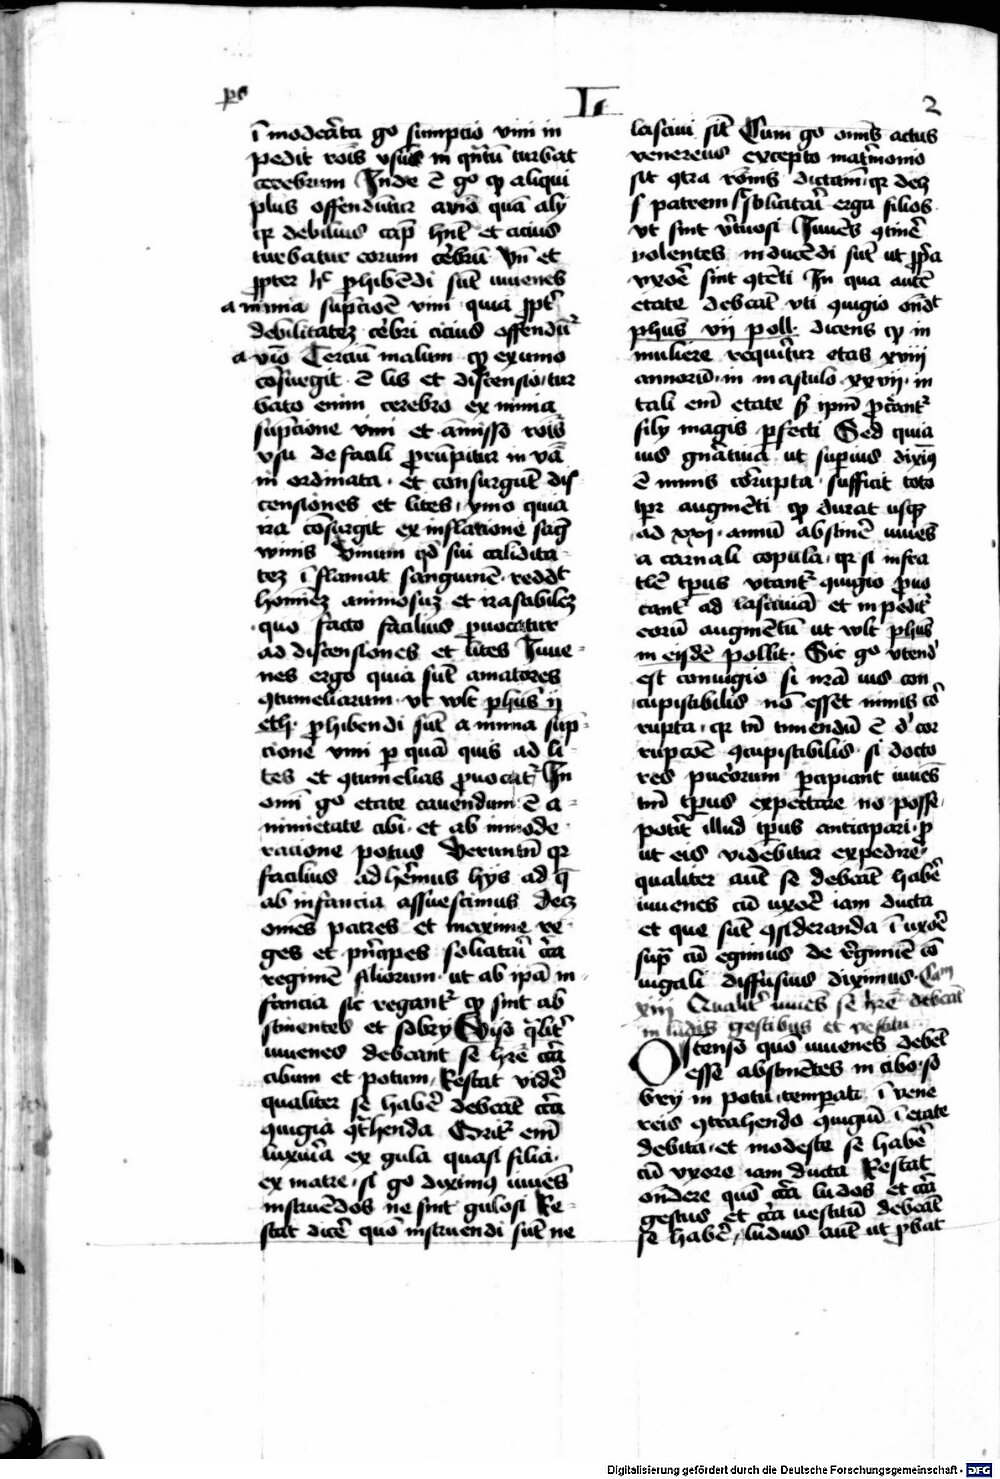 ps L 2
ī modcāta go sumptio vini in
pedit rōis vsum in qntū turbat
cerebrum Inde ē go qp aliqui
plus offendūtur a vīo quā alij
qr debilius cap̄ hn̄t et cicius
turbatur eorum cēbrū Vn̄ et
ꝓpter hc̄ ꝓhibēdi sūt iuuenes
a nimia supcioē vini quia ꝓpt̄
debilitatez cēbri cicius offendūt᷑
a vīo Terciū malum qp ex vino
cōsurgit ē lis et discensio tur
bato enim cerebro ex nimia
supcione vini et āmisso rōis
vsu de facili ꝓrūpitur in v̄ba
in ordinata et consurgūt dis
censiones et lites ymo quia
ira cōsurgit ex inflacione sāg
winis Vinum qd̄ sui calidita-
tez īflamat sanguinē reddit
hominez animosuz et irasabilez
quo facto facilius ꝓuocatur
ad discensiones et lites Iuue-
nes ergo quia sūt amatores
ꝯtumeliarum vt vult phus ij
eth ꝓhibendi sūt a nimia sup-
cione vini p quā quis ad li-
tes et ꝯtumelias ꝓuocat᷑ In
omī go etate cauendum ē a-
nimietate cibi et ab inmode-
racione potus Veruntn̄ qr
facilius adhēmus hijs ad q̄
ab infancia assuescimus decz
omēs patres et maxime re-
ges et pn̄cipes soliatari cc̄a
regimē filiorum ut ab ip̄a in-
fancia sic regant᷑ qp sint ab
stinentes et sobrij Viso qlit̄
iuuenes debeant se hr̄e cc̄a
cibum et potum Restat vidē
qualiter se habē debeāt cc̄a
ꝯiugia ꝯt̄henda Orit᷑ em̄
luxuria ex gula quasi filia
ex matre si go diximꝰ iuuēs
instruēdos ne sint gulosi Re-
stat dicē quō instruendi sūt ne
lasciui sīt Cum go omīs actus
venereus excepto mat̄monio
sit ꝯtra rōnis dictam̄ qr decz
s patrem solicitari erga filios
vt sint v̄tuosi Iuuēs ꝯtinē
volentes inducēdi sūt ut ꝓp̄a
vxoē sint ꝯtēti In qua autē
etate debeāt vti ꝯiugio ond̄t
phus vij poll dicens qp in
muliere requirtur etas xviij
annorū in masculo xxvij in
tali em̄ etate s̄ ipm̄ ꝓcānt᷑
filij magis ꝑfecti Sed quia
ius gn̄atiuā ut supius diximꝰ
ē nimis corupta sufficit toto
tpr augmēti qp durat usqꝫ
ad xxi annū abstinē iuuēs
a carnali copula qr si infra
tlē tpus vtant᷑ ꝯiugio ꝓuo
cant᷑ ad lasciuiā et inpedit᷑
eorū augmētū ut vlt phus
in eisdē pollit Sic go vtend̄
est coniugio si nrā ius con
cupiscibilis nō esset nimis cor̄
rupta qr tn̄ timendū ē d' cor
rupcōe ꝯcupiscibilis si docto
res puerorum ꝑcipiant iuuēs
tm̄ tpus expectare nō posse
potit᷑ illud tpus anticipari ꝓ
ut eis videbitur expedire
qualiter aut̄ se debeāt habē
iuuenes cū vxoē iam ducta
et que sūt ꝯsideranda ī uxoē
sup̄ cū egimus de regimīe cō
iugali diffusius diximus Cam
xiij Qualit᷑ iuuēs se hr̄e debeāt
in ludis gestibus et vestitu
Ostenso quō iuuenes debet
esse abstinētes in cibo so
brij in potu temperati ī vene
reis ꝯtrahendo ꝯiugiū ī etate
debita et modeste se habē
cū vxore iam ducta Restat
ondere quō cc̄a ludos et cc̄a
gestus et cc̄a uestitū debeāt
se habē ludus aut̄ ut ꝓbat
Digitalisierung gefördert durch die Deutsche Forschungsgemeinschaft - DFG